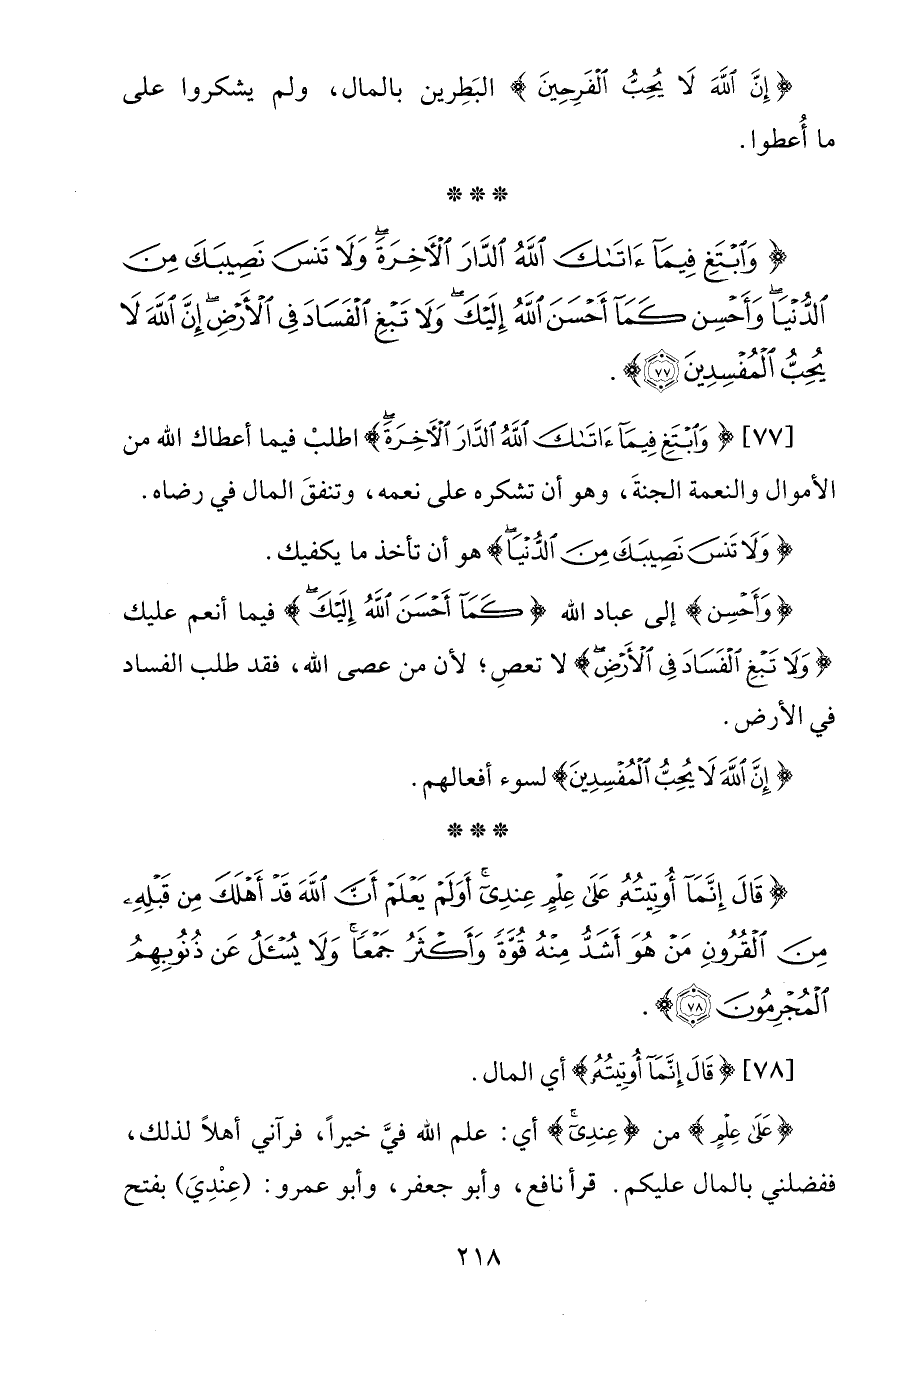 ﴿ إِنَّ ٱللَّهَ لَا يُحِبُّ ٱلْفَرِحِينَ ﴾ البَطِرين بالمال، ولم يشكروا على
ما أُعطوا.
***
﴿ وَٱبْتَغِ فِيمَآ ءَاتَىٰكَ ٱللَّهُ ٱلدَّارَ ٱلْأَخِرَةَ ۖ وَلَا تَنسَ نَصِيبَكَ مِنَ
ٱلدُّنْيَا ۖ وَأَحْسِن كَمَآ أَحْسَنَ ٱللَّهُ إِلَيْكَ ۖ وَلَا تَبْغِ ٱلْفَسَادَ فِى ٱلْأَرْضِ ۖ إِنَّ ٱللَّهَ لَا
يُحِبُّ ٱلْمُفْسِدِينَ ٧٧ ﴾.
[٧٧] ﴿ وَٱبْتَغِ فِيمَآ ءَاتَىٰكَ ٱللَّهُ ٱلدَّارَ ٱلْأَخِرَةَ ۖ ﴾ اطلبْ فيما أعطاك الله من
الأموال والنعمة الجنةَ، وهو أن تشكره على نعمه، وتنفقَ المال في رضاه.
﴿ وَلَا تَنسَ نَصِيبَكَ مِنَ ٱلدُّنْيَا ۖ ﴾ هو أن تأخذ ما يكفيك.
﴿ وَأَحْسِن ﴾ إلى عباد الله ﴿ كَمَآ أَحْسَنَ ٱللَّهُ إِلَيْكَ ۖ ﴾ فيما أنعم عليك
﴿ وَلَا تَبْغِ ٱلْفَسَادَ فِى ٱلْأَرْضِ ۖ ﴾ لا تعصِ؛ لأن من عصى الله، فقد طلب الفساد
في الأرض.
﴿ إِنَّ ٱللَّهَ لَا يُحِبُّ ٱلْمُفْسِدِينَ ﴾ لسوء أفعالهم.
***
﴿ قَالَ إِنَّمَآ أُوتِيتُهُۥ عَلَىٰ عِلْمٍ عِندِىٓ ۚ أَوَلَمْ يَعْلَمْ أَنَّ ٱللَّهَ قَدْ أَهْلَكَ مِن قَبْلِهِۦ
مِنَ ٱلْقُرُونِ مَنْ هُوَ أَشَدُّ مِنْهُ قُوَّةً وَأَكْثَرُ جَمْعًا ۚ وَلَا يُسْـَٔلُ عَن ذُنُوبِهِمُ
ٱلْمُجْرِمُونَ ٧٨ ﴾.
[٧٨] ﴿ قَالَ إِنَّمَآ أُوتِيتُهُۥ ﴾ أي المال.
﴿ عَلَىٰ عِلْمٍ ﴾ من ﴿ عِندِىٓ ۚ ﴾ أي: علم الله فيَّ خيراً، فرآني أهلاً لذلك،
ففضلني بالمال عليكم. قرأ نافع، وأبو جعفر، وأبو عمرو: (عِنْدِيَ) بفتح
٢١٨